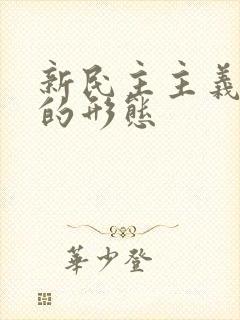 新民主主義
的形態
華少登